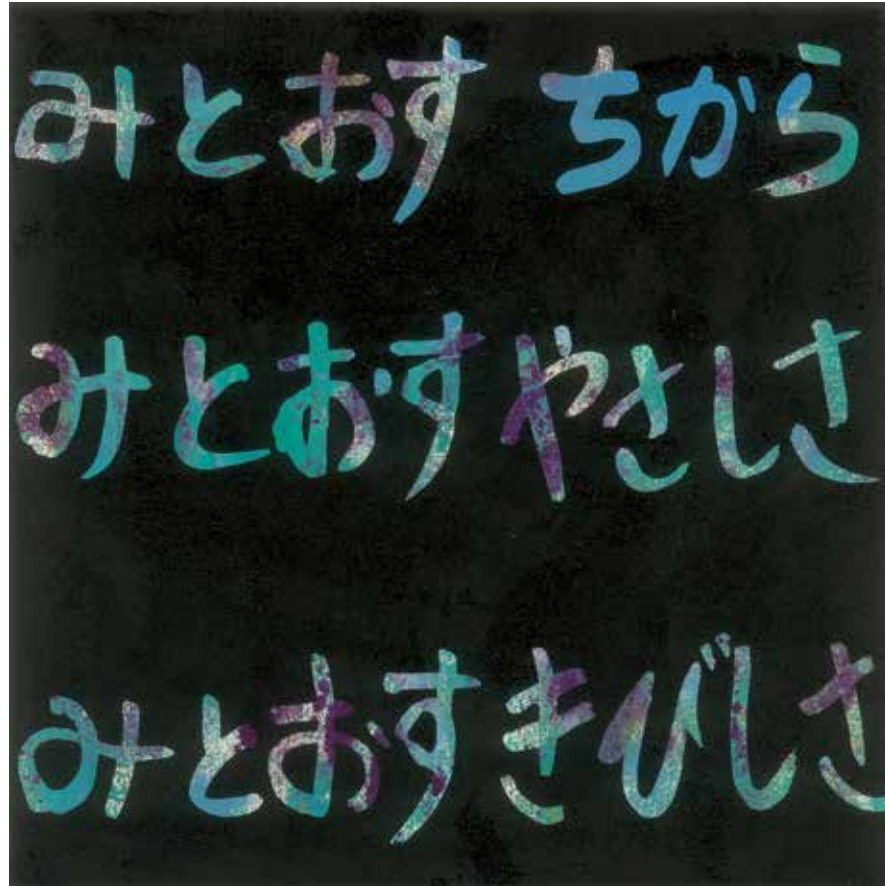 みとおす ちから
みとおす やさしさ
みとおす きびしさ